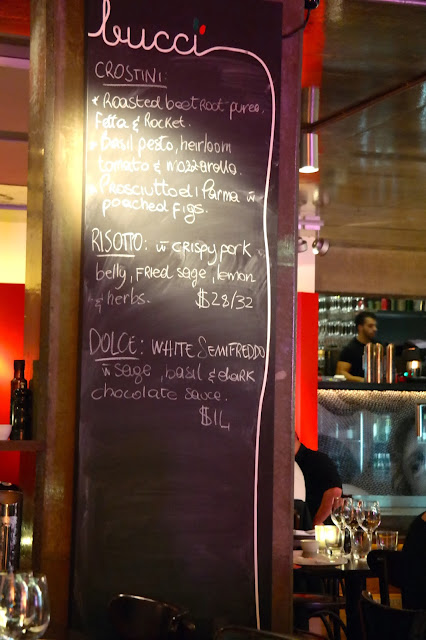 bucci
CROSTINI:
* Roasted beetroot puree,
Fetta & Rocket.
* Basil pesto, heirloom
tomato & mozzarella.
* Prosciutto di Parma w̄
poached figs.
RISOTTO: w̄ crispy pork
belly, fried sage, lemon
& herbs. $28/32
DOLCE: WHITE SEMIFREDDO
w̄ sage, basil & dark
chocolate sauce.
$14